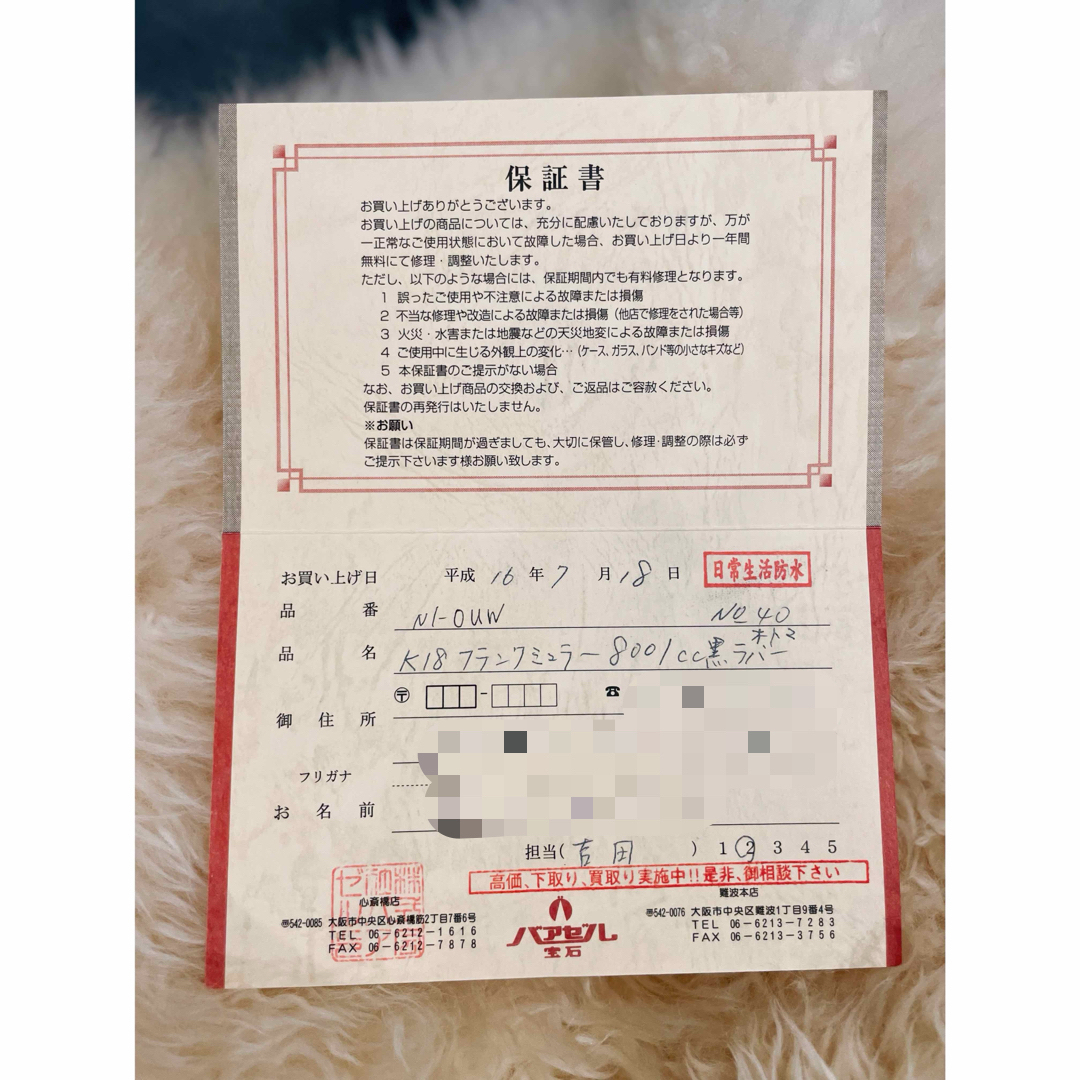 保証書
お買い上げありがとうございます。
お買い上げの商品については、充分に配慮いたしておりますが、万が
一正常なご使用状態において故障した場合、お買い上げ日より一年間
無料にて修理・調整いたします。
ただし、以下のような場合には、保証期間内でも有料修理となります。
1 誤ったご使用や不注意による故障または損傷
2 不当な修理や改造による故障または損傷（他店で修理をされた場合等）
3 火災・水害または地震などの天災地変による故障または損傷
4 ご使用中に生じる外観上の変化…（ケース、ガラス、バンド等の小さなキズなど）
5 本保証書のご提示がない場合
なお、お買い上げ商品の交換および、ご返品はご容赦ください。
保証書の再発行はいたしません。
※お願い
保証書は保証期間が過ぎましても、大切に保管し、修理・調整の際は必ず
ご提示下さいます様お願い致します。
お買い上げ日 平成16年7月18日 日常生活防水
品番 N1-OUW No 40
品名 K18フランクミュラー8001cc黒ラバー
〒 - ☎
御住所
フリガナ
お名前
担当(吉田) 1 2 3 4 5
高価、下取り、買取り実施中!!是非、御相談下さい
心斎橋店
〒542-0085 大阪市中央区心斎橋筋2丁目7番6号
TEL 06-6212-1616
FAX 06-6212-7878
バアゼル
宝石
難波本店
〒542-0076 大阪市中央区難波1丁目9番4号
TEL 06-6213-7283
FAX 06-6213-3756